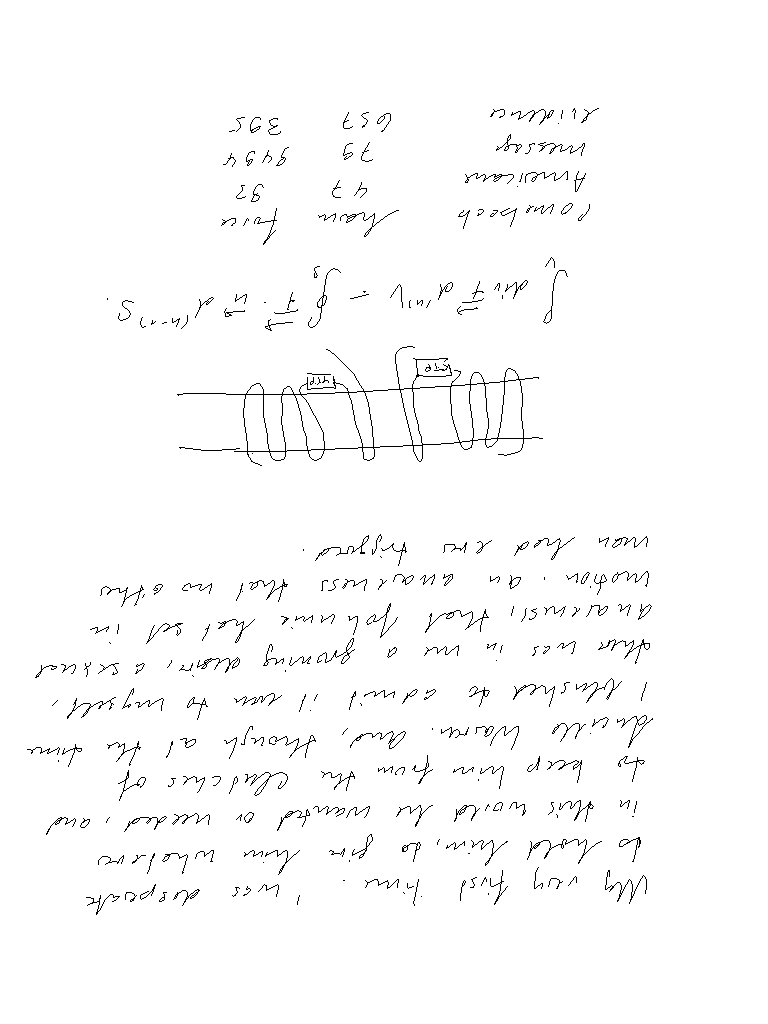 My very first time. I was desperate
to hold him, to give him whatever
in this world he wanted or needed, and
to keep him from the clutches of
Lucille Warren. And, though at the time
I blushed to admit it even to myself,
there was in me a growing desire, a sexual
awareness, that Johnnie had set in
motion. An awareness that no other
man had ever triggered.
∫_V div F⃗ d^(n)V = ∮_S F⃗ · n⃗ d^(n-1)S.
Comeback ham force
American 47 92
message 79 9494
evidence 657 395